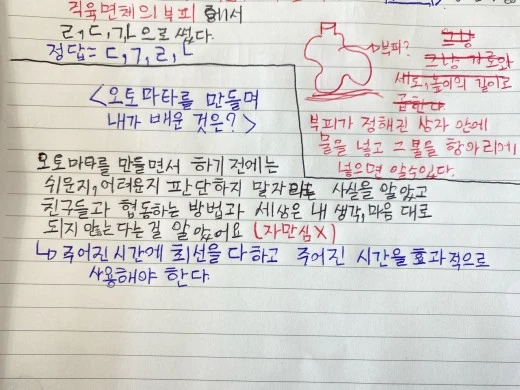 직육면체의 부피 에서
ㄹ, ㄷ, 가 으로 썼다.
정답 = ㄷ, ㄱ, ㄹ, ㄴ
부피?
그냥
그냥 가로와
세로, 높이의 길이로
곱한다
부피가 정해진 상자 안에
물을 넣고 그 물을 항아리에
넣으면 알수있다.
<오토마타를 만들며
내가 배운 것은?>
오토마타를 만들면서 하기 전에는
쉬운지, 어려운지 판단하지 말자 라는 사실을 알았고
친구들과 협동하는 방법과 세상은 내 생각, 마음 대로
되지 않는 다는걸 알았어요 (자만심X)
↳ 주어진 시간에 최선을 다하고 주어진 시간을 효과적으로
사용해야 한다.